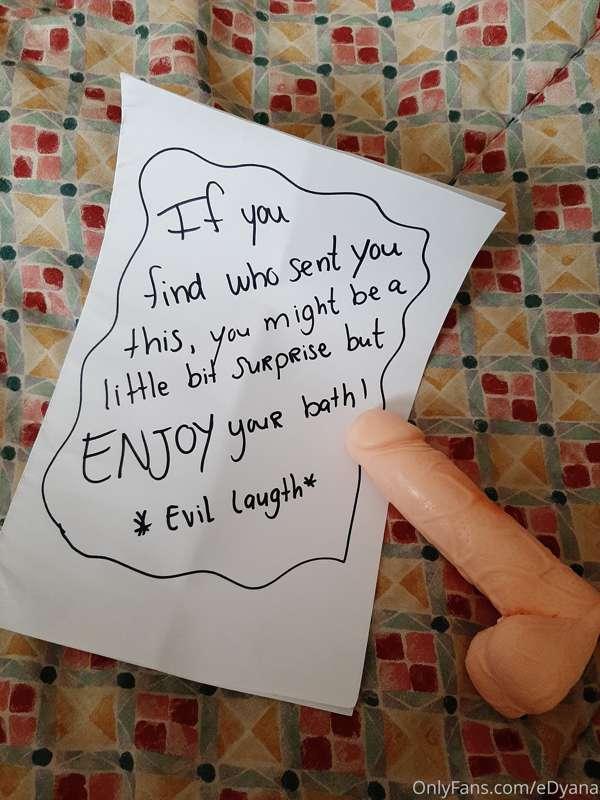 If you
find who sent you
this, you might be a
little bit surprise but
ENJOY your bath!
* Evil laugth*
OnlyFans.com/eDyana